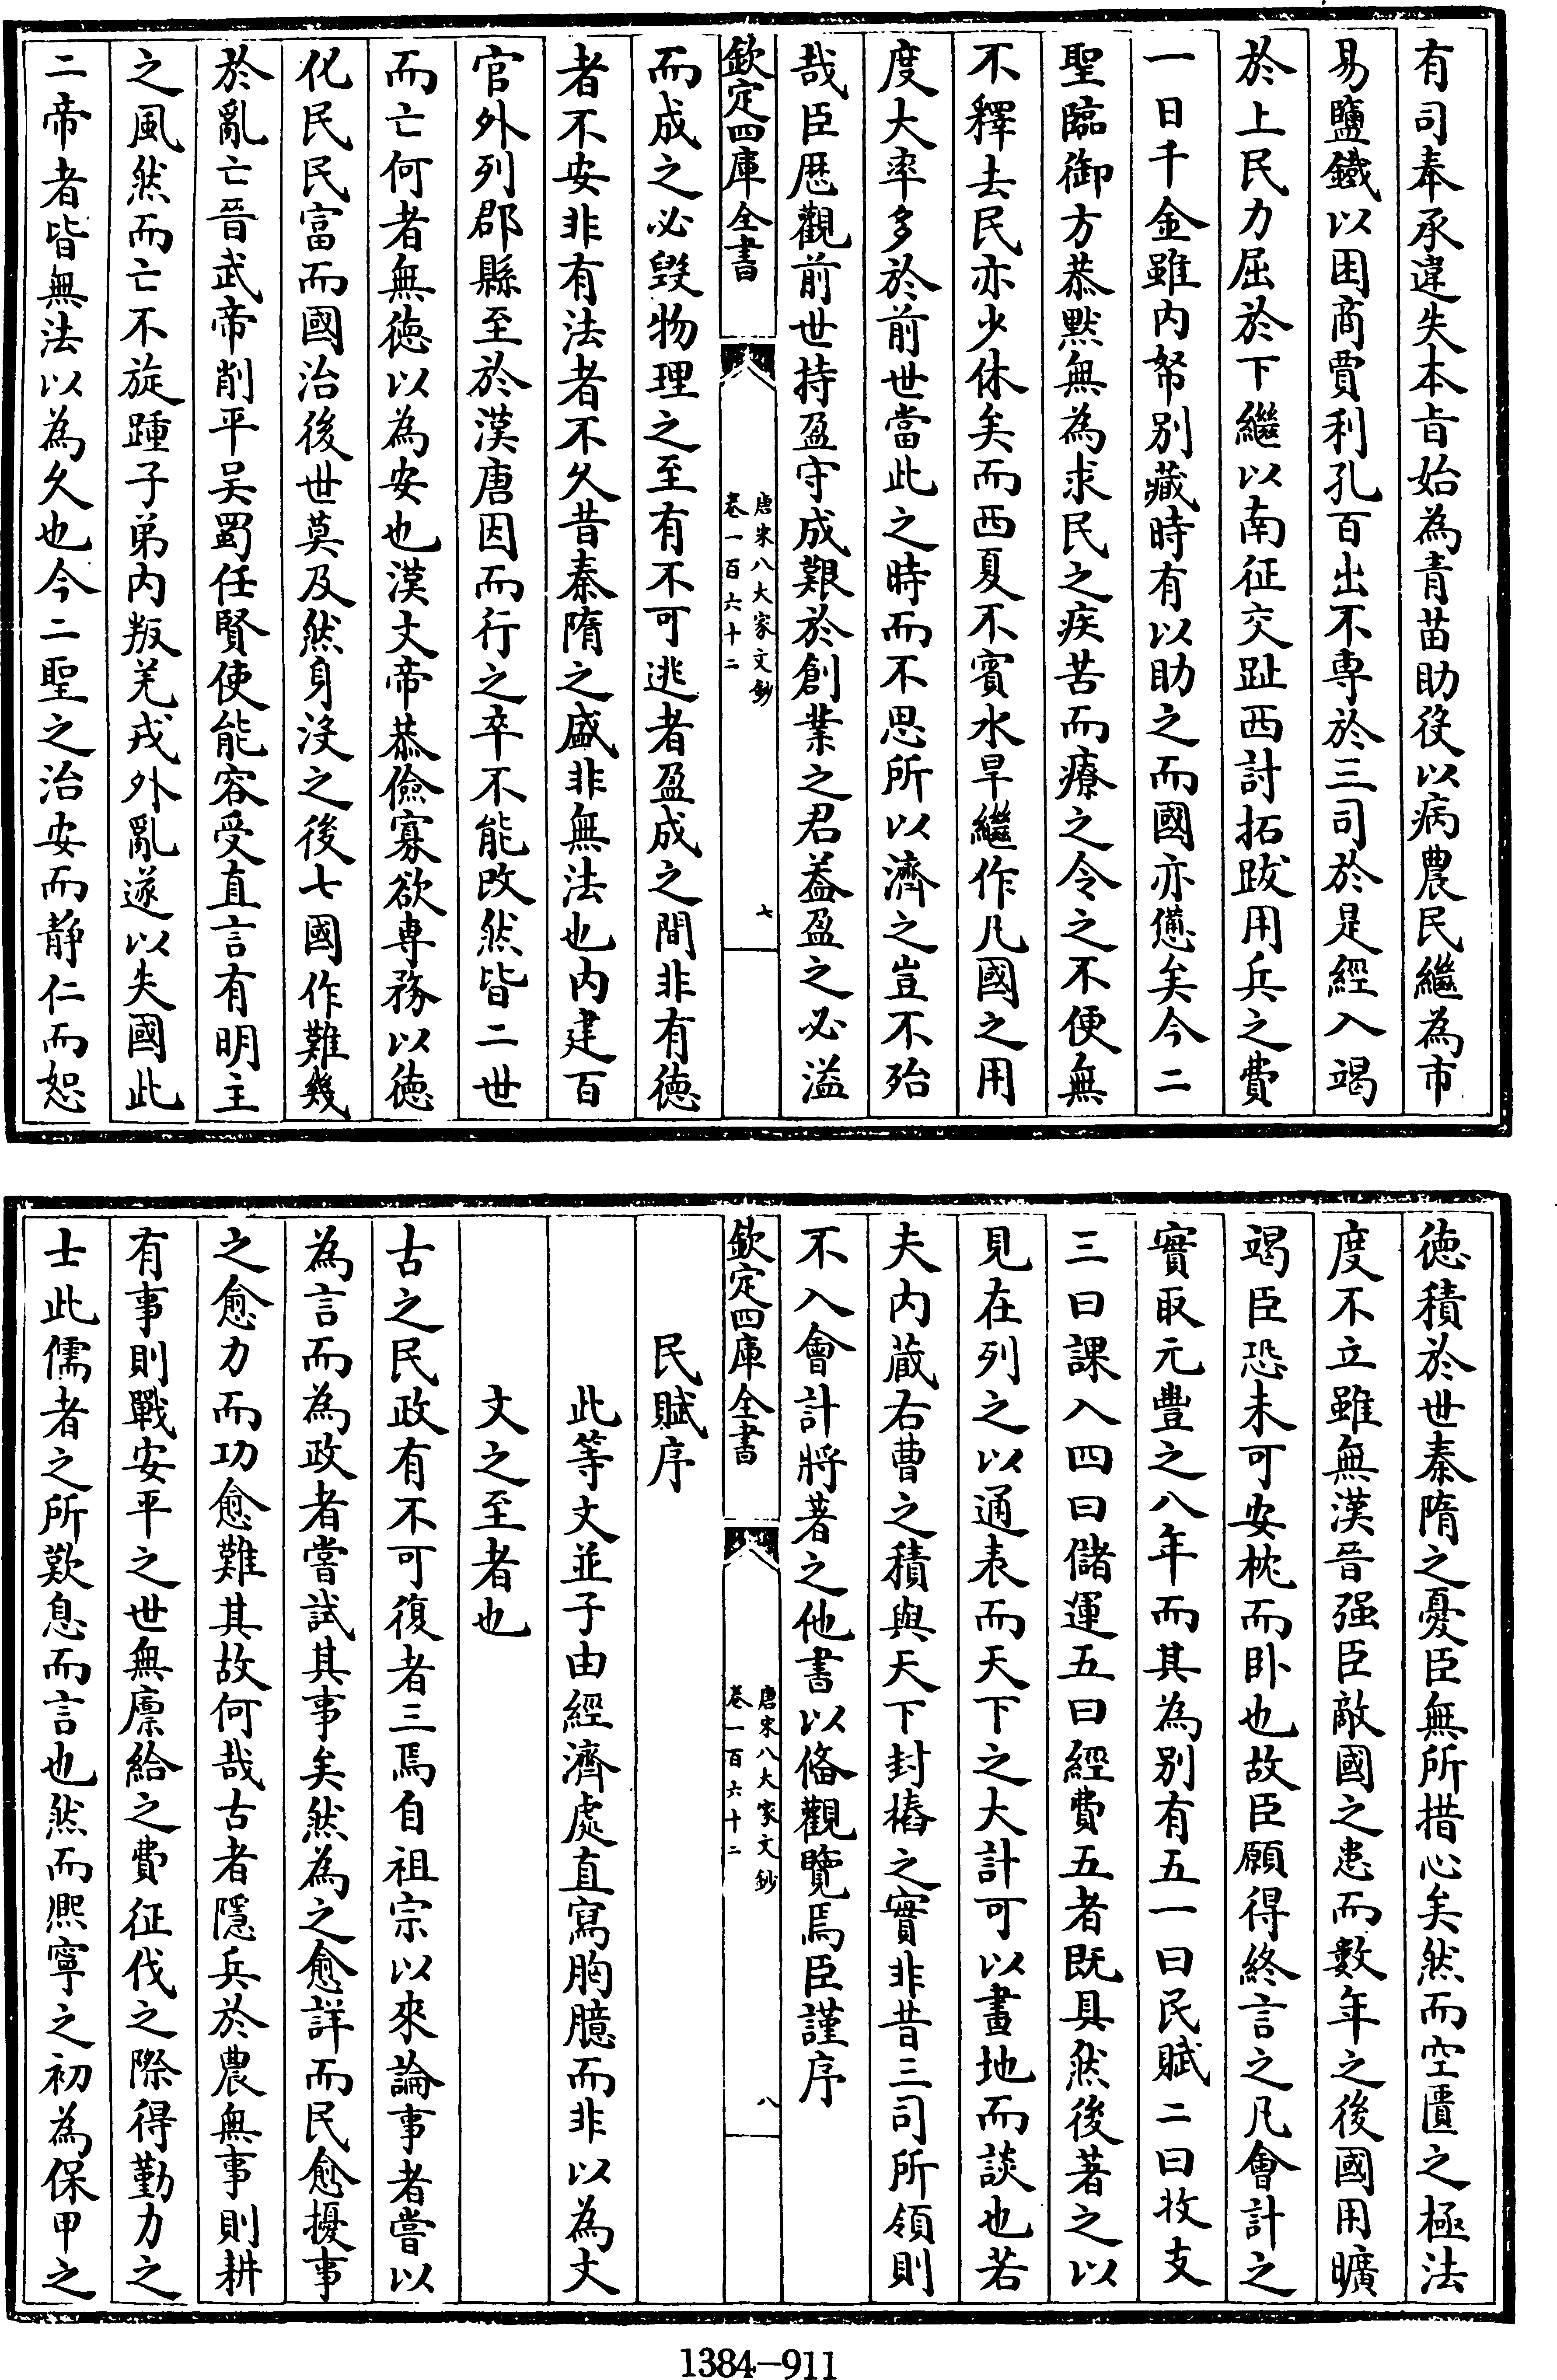 有司奉承違失本㫖始為青苗助役以病農民繼為市
易鹽鐵以困商賈利孔百出不專於三司於是經入竭
於上民力屈於下繼以南征交趾西討拓跋用兵之費
一日千金雖内帑別藏時有以助之而國亦憊矣今二
聖臨御方恭黙無為求民之疾苦而療之令之不便無
不釋去民亦少休矣而西夏不賓水旱繼作凡國之用
度大率多於前世當此之時而不思所以濟之豈不殆
哉臣厯觀前世持盈守成艱於創業之君葢盈之必溢
欽定四庫全書
唐宋八大家文鈔
卷一百六十二
七
而成之必毁物理之至有不可逃者盈成之間非有徳
者不安非有法者不久昔秦隋之盛非無法也内建百
官外列郡縣至於漢唐因而行之卒不能改然皆二世
而亡何者無徳以為安也漢文帝恭儉寡欲專務以徳
化民民富而國治後世莫及然身沒之後七國作難幾
於亂亡晉武帝削平吴蜀任賢使能容受直言有明主
之風然而亡不旋踵子弟内叛羌戎外亂遂以失國此
二帝者皆無法以為久也今二聖之治安而靜仁而恕
徳積於世秦隋之憂臣無所措心矣然而空匱之極法
度不立雖無漢晉强臣敵國之患而數年之後國用曠
竭臣恐未可安枕而卧也故臣願得終言之凡㑹計之
實取元豐之八年而其為别有五一曰民賦二曰收支
三曰課入四曰儲運五曰經費五者既具然後著之以
見在列之以通表而天下之大計可以畫地而談也若
夫内蔵右曹之積與天下封樁之實非昔三司所領則
不入會計將著之他書以偹觀覽焉臣謹序
欽定四庫全書
唐宋八大家文鈔
卷一百六十二
八
民賦序
此等文並子由經濟處直寫胸臆而非以為文
文之至者也
古之民政有不可復者三焉自祖宗以來論事者嘗以
為言而為政者嘗試其事矣然為之愈詳而民愈擾事
之愈力而功愈難其故何哉古者隱兵於農無事則耕
有事則戰安平之世無廩給之費征伐之際得勤力之
士此儒者之所歎息而言也然而熈寧之初為保甲之
1384-911